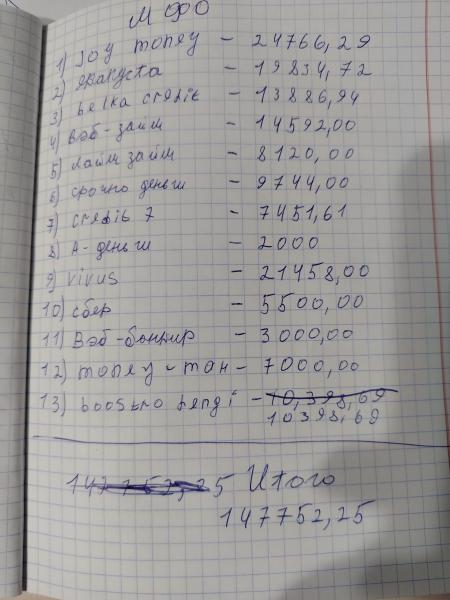 МФО
1) Joy money - 24766,29
2) екапуста - 19834,72
3) belka credit - 13886,94
4) Вэб-займ - 14592,00
5) лайм займ - 8120,00
6) срочно деньги - 9744,00
7) credit 7 - 7451,61
8) А-деньги - 2000
9) vivus - 21458,00
10) сбер - 5500,00
11) Вэб-банкир - 3000,00
12) money-man - 7000,00
13) boostro dengi - 10,398,69
10398,69
147752,25 Итого
147752,25